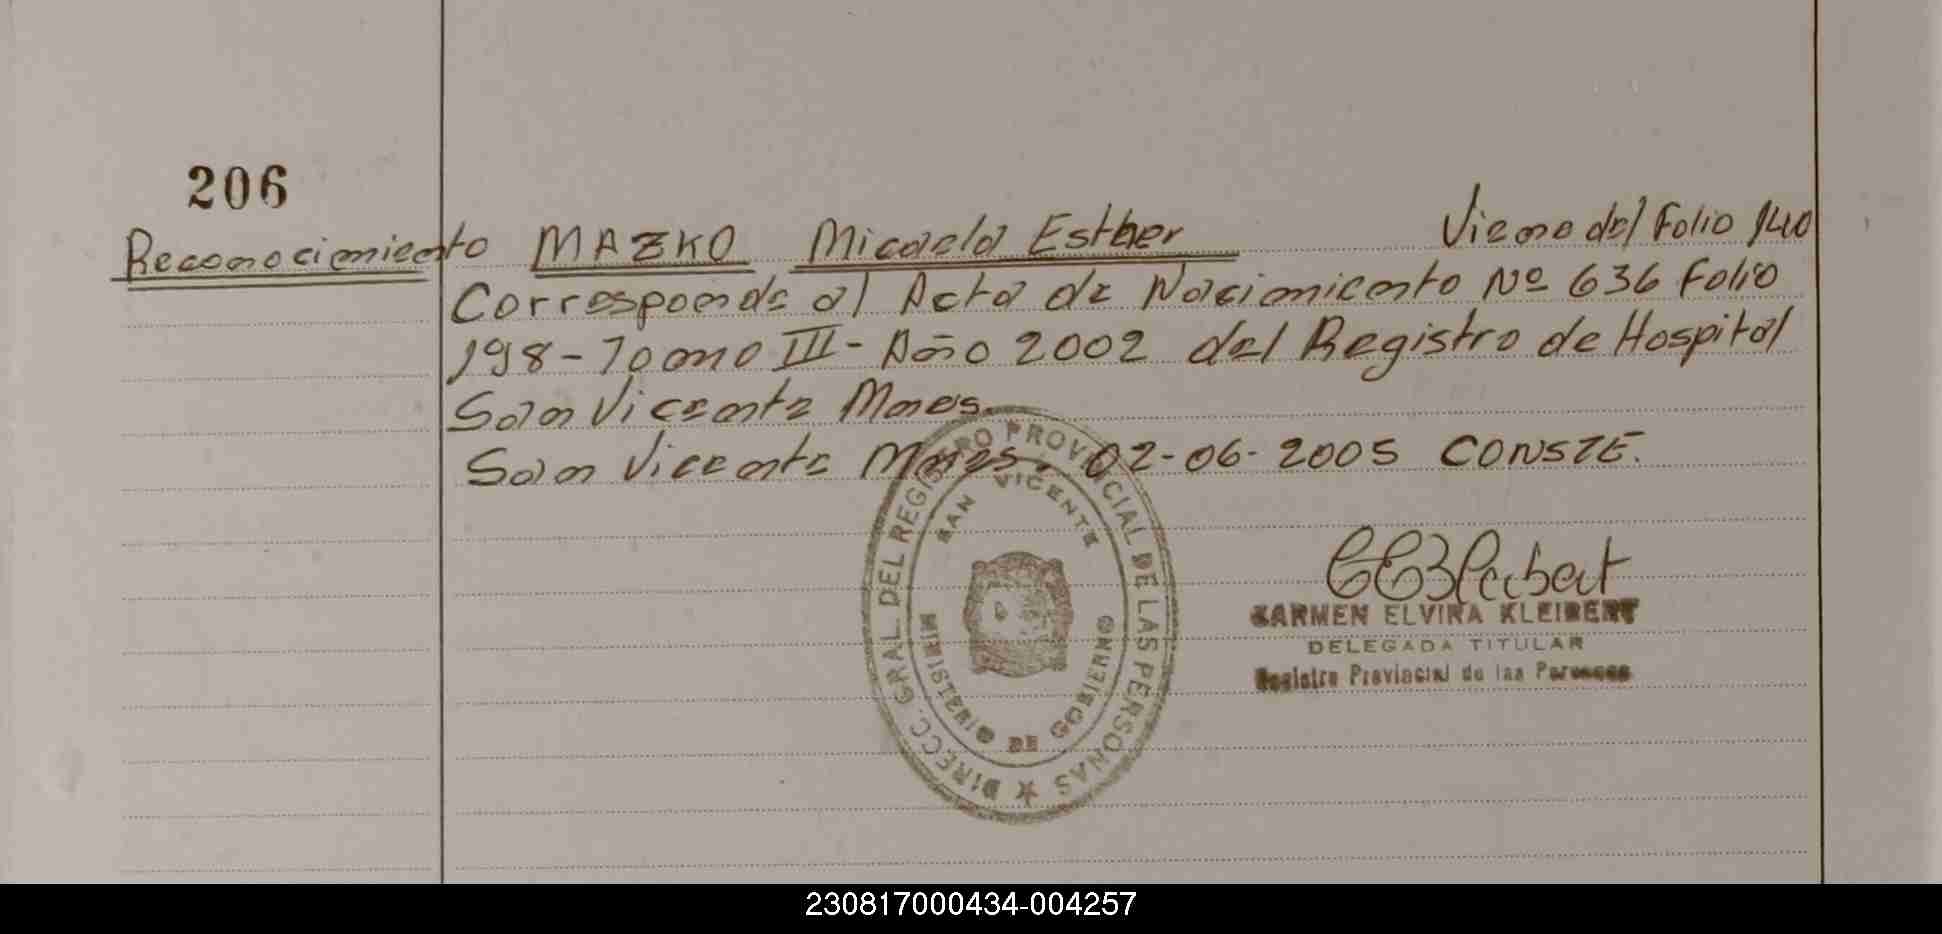 206
Reconocimiento MAZKO Micaela Esther Viene del Folio 140
Corresponde al Acta de Nacimiento Nº 636 Folio
198 - Tomo III - Año 2002 del Registro de Hospital
San Vicente Mnes.
San Vicente Mnes. 02-06-2005 CONSTE.
DIRECC. GRAL. DEL REGISTRO PROVINCIAL DE LAS PERSONAS
SAN VICENTE
MINISTERIO DE GOBIERNO
CARMEN ELVIRA KLEIBERT
DELEGADA TITULAR
Registro Provincial de las Personas
230817000434-004257